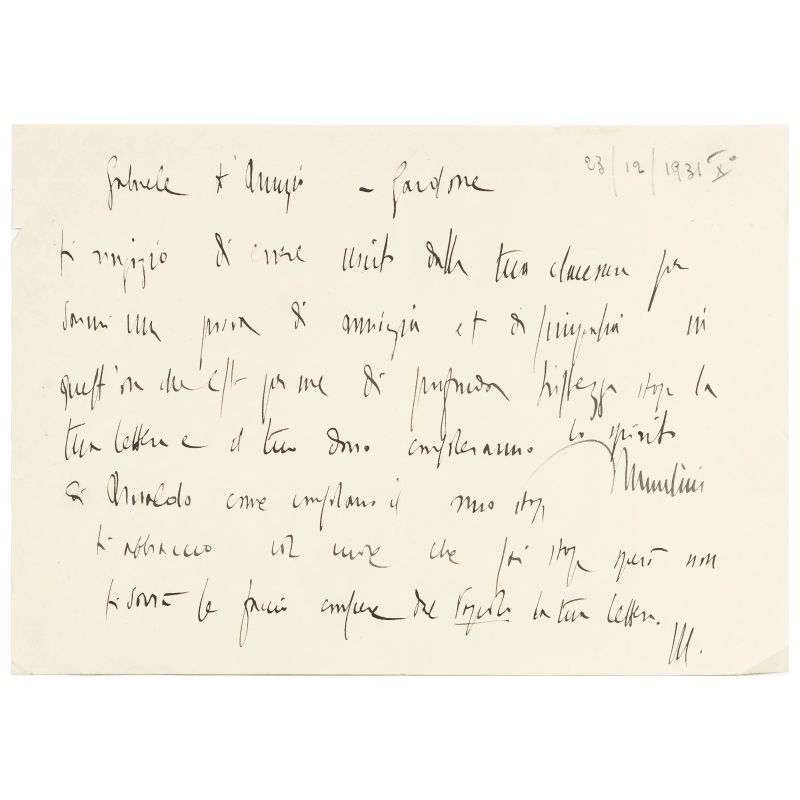 23/12/1931 X°
Gabriele d'Annunzio - Gardone
ti ringrazio di essere uscito dalla tua clausura per
darmi una prova di amicizia et di simpatia in
quest'ora che est per me di profonda tristezza stop la
tua lettera e il tuo dono consoleranno lo spirito
di Arnaldo come consolano il mio stop
Mussolini
ti abbraccio col cuore che sai stop spero non
ti dorrà se faccio compare dal Popolo la tua lettera.
M.